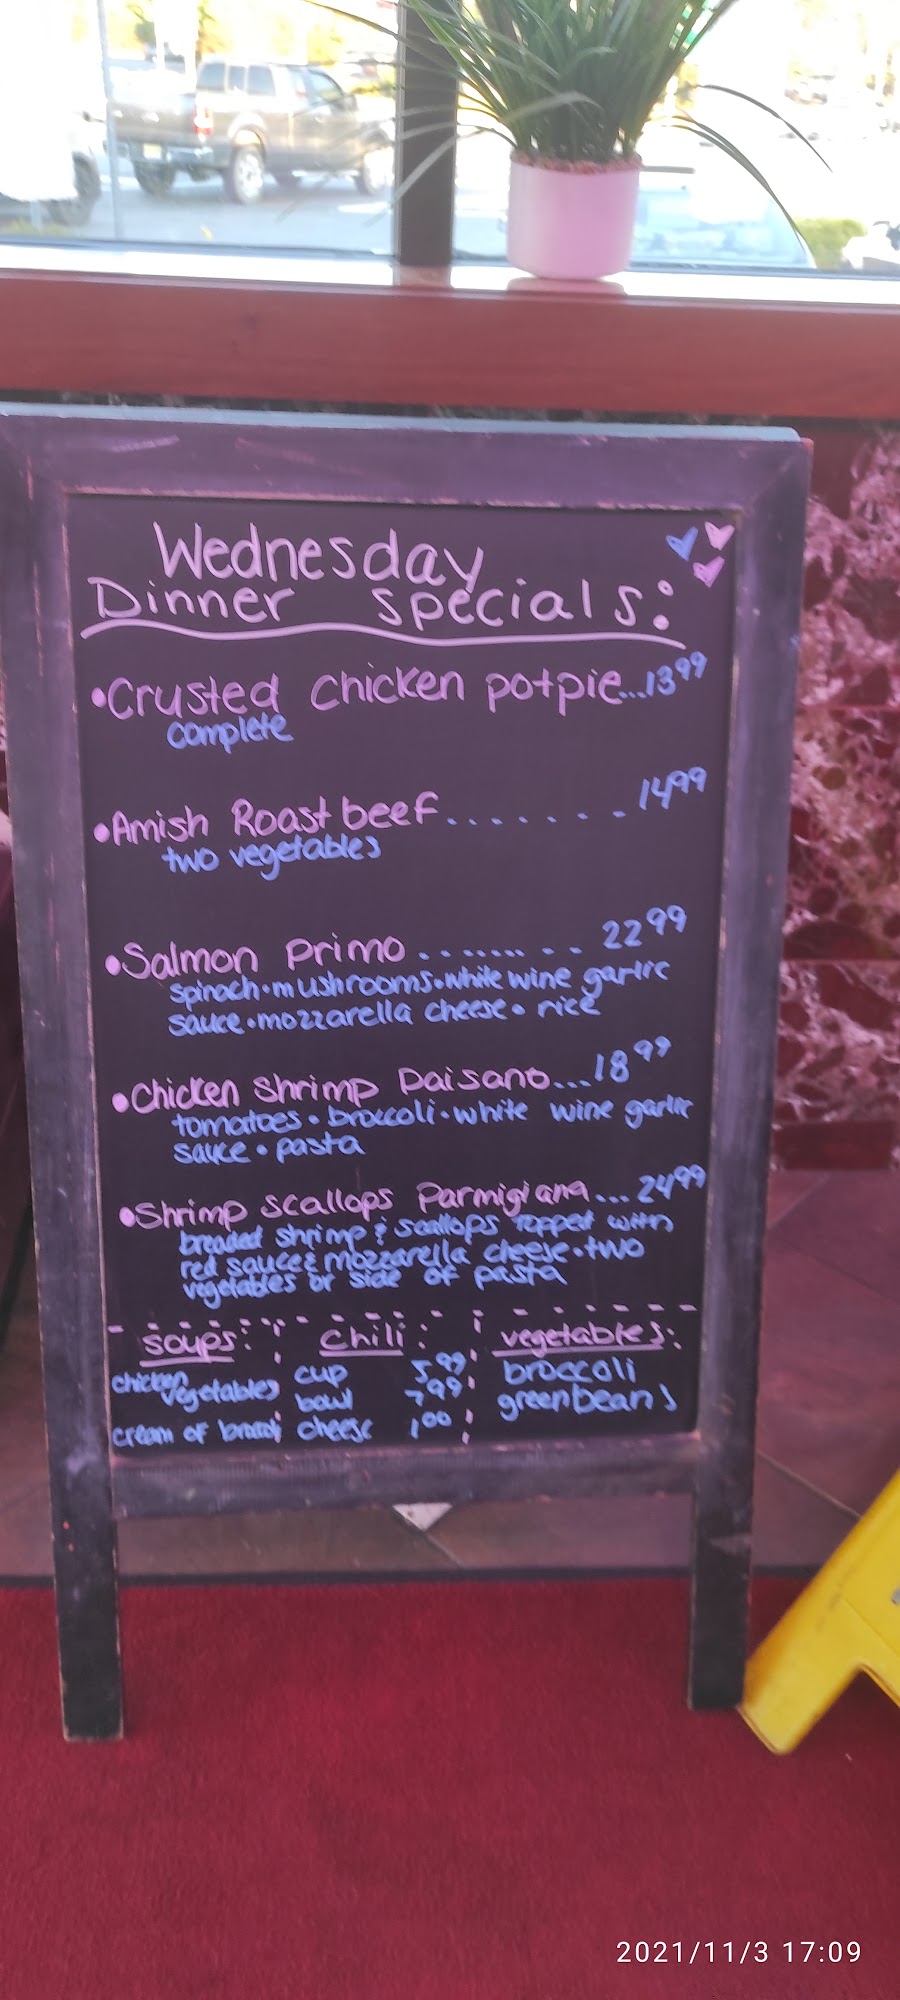 Wednesday
Dinner specials:
•Crusted Chicken potpie...13⁹⁹
complete
•Amish Roast beef........14⁹⁹
two vegetables
•Salmon Primo.........22⁹⁹
spinach•mushrooms•white wine garlic
sauce•mozzarella cheese•rice
•Chicken Shrimp Paisano...18⁹⁹
tomatoes•broccoli•white wine garlic
sauce•pasta
•Shrimp scallops Parmigiana...24⁹⁹
breaded shrimp & scallops topped with
red sauce & mozzarella cheese•two
vegetables or side of pasta
soups:
chicken
vegetables
cream of brocoli
chili:
cup 5⁹⁹
bowl 7⁹⁹
cheese 1⁰⁰
vegetables:
broccoli
greenbeans
2021/11/3 17:09